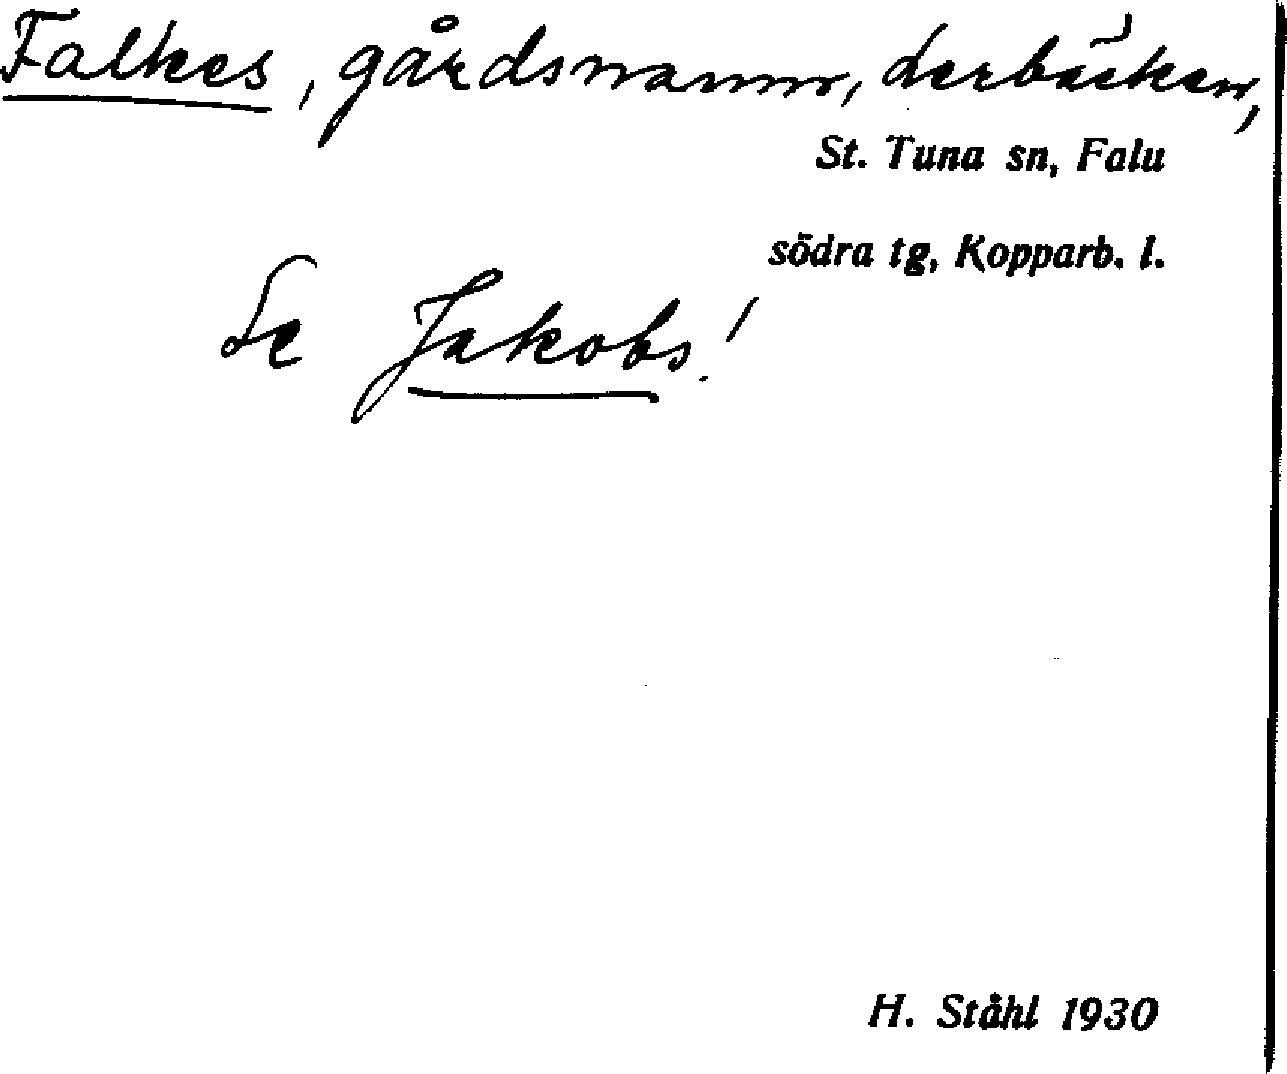 Falkes, gårdsnamn, Lerbäcken,
St. Tuna sn, Falu
södra tg, Kopparb. l.
Se Jakobs!
H. Ståhl 1930